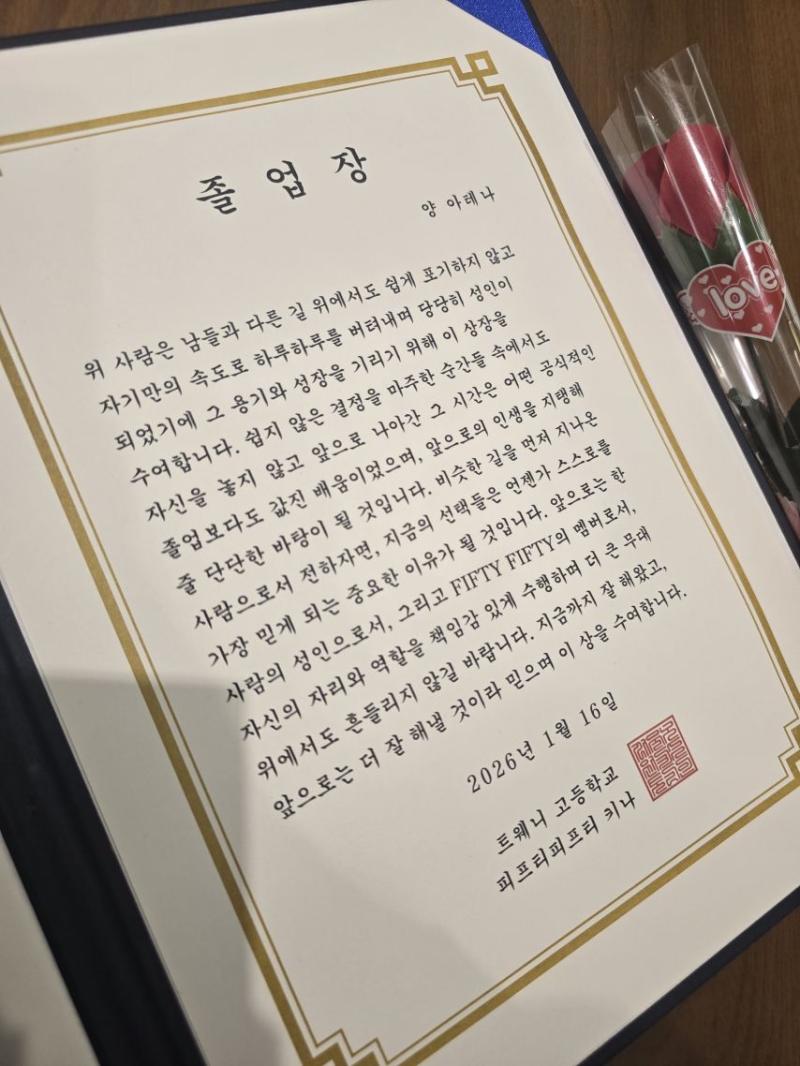 졸 업 장
양 아테나
위 사람은 남들과 다른 길 위에서도 쉽게 포기하지 않고
자기만의 속도로 하루하루를 버텨내며 당당히 성인이
되었기에 그 용기와 성장을 기리기 위해 이 상장을
수여합니다. 쉽지 않은 결정을 마주한 순간들 속에서도
자신을 놓지 않고 앞으로 나아간 그 시간은 어떤 공식적인
졸업보다도 값진 배움이었으며, 앞으로의 인생을 지탱해
줄 단단한 바탕이 될 것입니다. 비슷한 길을 먼저 지나온
사람으로서 전하자면, 지금의 선택들은 언젠가 스스로를
가장 믿게 되는 중요한 이유가 될 것입니다. 앞으로는 한
사람의 성인으로서, 그리고 FIFTY FIFTY의 멤버로서,
자신의 자리와 역할을 책임감 있게 수행하며 더 큰 무대
위에서도 흔들리지 않길 바랍니다. 지금까지 잘 해왔고,
앞으로는 더 잘 해낼 것이라 믿으며 이 상을 수여합니다.
2026년 1월 16일
트웨니 고등학교
피프티피프티 키나
love